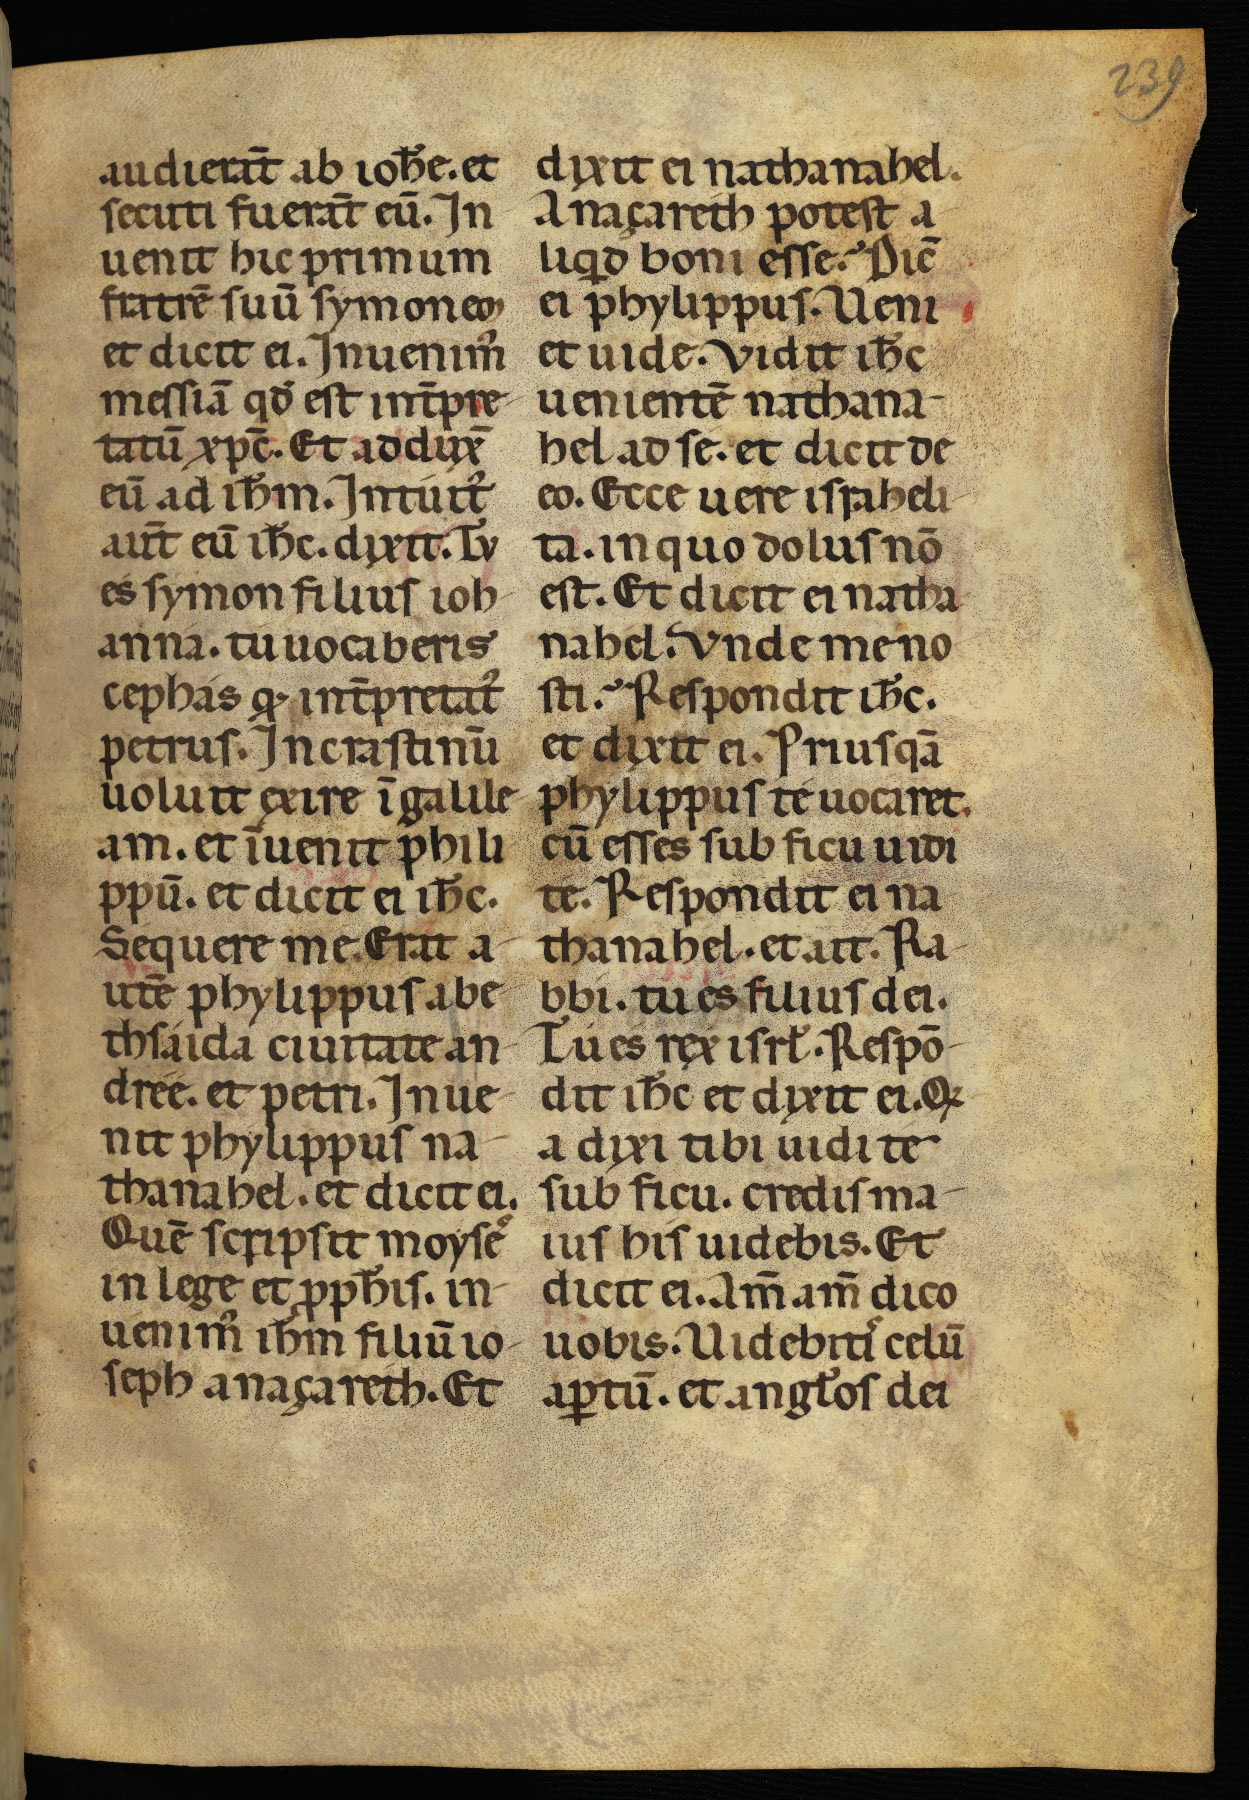 239
audierāt ab ioħe. et
secuti fuerāt eū. In
uenit hic primum
fratrē suū symonem
et dicit ei. Inuenim᷒
messiā qđ est int̄pre
tatū xp̄c. Et addux̄
eū ad ih̄m. Intuit᷒
aut̄ eū ih̄c. dixit. Tu
es symon filius ioh
anna. tu uocaberis
cephas qđ int̄pretat᷒
petrus. In crastinū
uoluit exire ī galile
am. et īuenit phili
ppū. et dicit ei ih̄c.
Sequere me. Erat a
utē phylippus a be
thsaida ciuitate an
dree. et petri. Inue
nit phylippus na
thanahel. et dicit ei.
Quē scripsit moyses
in lege et ꝓpħis. in
uenim᷒ ih̄m filiū io
seph a naçareth. Et
dixit ei nathanahel.
A naçareth potest a
liqd boni esse? Dic̄
ei phylippus. Ueni
et uide. Vidit ih̄c
uenientē nathana
hel ad se. et dicit de
eo. Ecce uere israheli
ta. in quo dolus nō
est. Et dicit ei natha
nahel. Vnde me no
sti? Respondit ih̄c.
et dixit ei. Priusqā
phylippus te uocaret.
cū esses sub ficu uidi
te. Respondit ei na
thanahel. et ait. Ra
bbi. tu es filius dei.
Tu es rex isrł. Respō
dit ih̄c et dixit ei. Q
a dixi tibi uidi te
sub ficu. credis ma
ius his uidebis. Et
dicit ei. Am̄ am̄ dico
uobis. Uidebitis celū
aꝑtū. et angłos dei